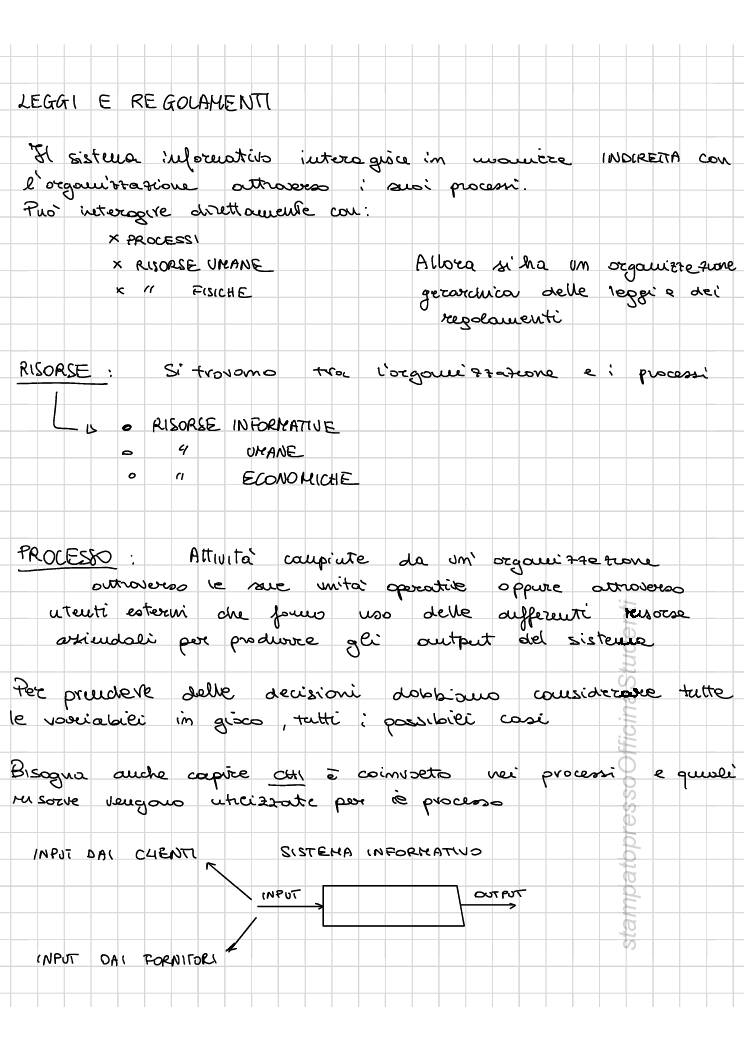 LEGGI E REGOLAMENTI
Il sistema informativo interagisce in maniera INDIRETTA con
l'organizzazione attraverso i suoi processi.
Può interagire direttamente con:
x PROCESSI
x RISORSE UMANE
x " FISICHE
Allora si ha un organizzazione
gerarchica delle leggi e dei
regolamenti
RISORSE : Si trovano tra l'organizzazione e i processi
• RISORSE INFORMATIVE
• " UMANE
• " ECONOMICHE
PROCESSO : Attività compiute da un' organizzazione
attraverso le sue unità operative oppure attraverso
utenti esterni che fanno uso delle differenti risorse
aziendali per produrre gli output del sistema
Per prendere delle decisioni dobbiamo considerare tutte
le variabili in gioco, tutti i possibili casi
Bisogna anche capire CHI è coinvolto nei processi e quali
risorse vengono utilizzate per il processo
INPUT DAI CLIENTI
SISTEMA INFORMATIVO
INPUT
OUTPUT
INPUT DAI FORNITORI
stampatopressoOfficinaStudenti